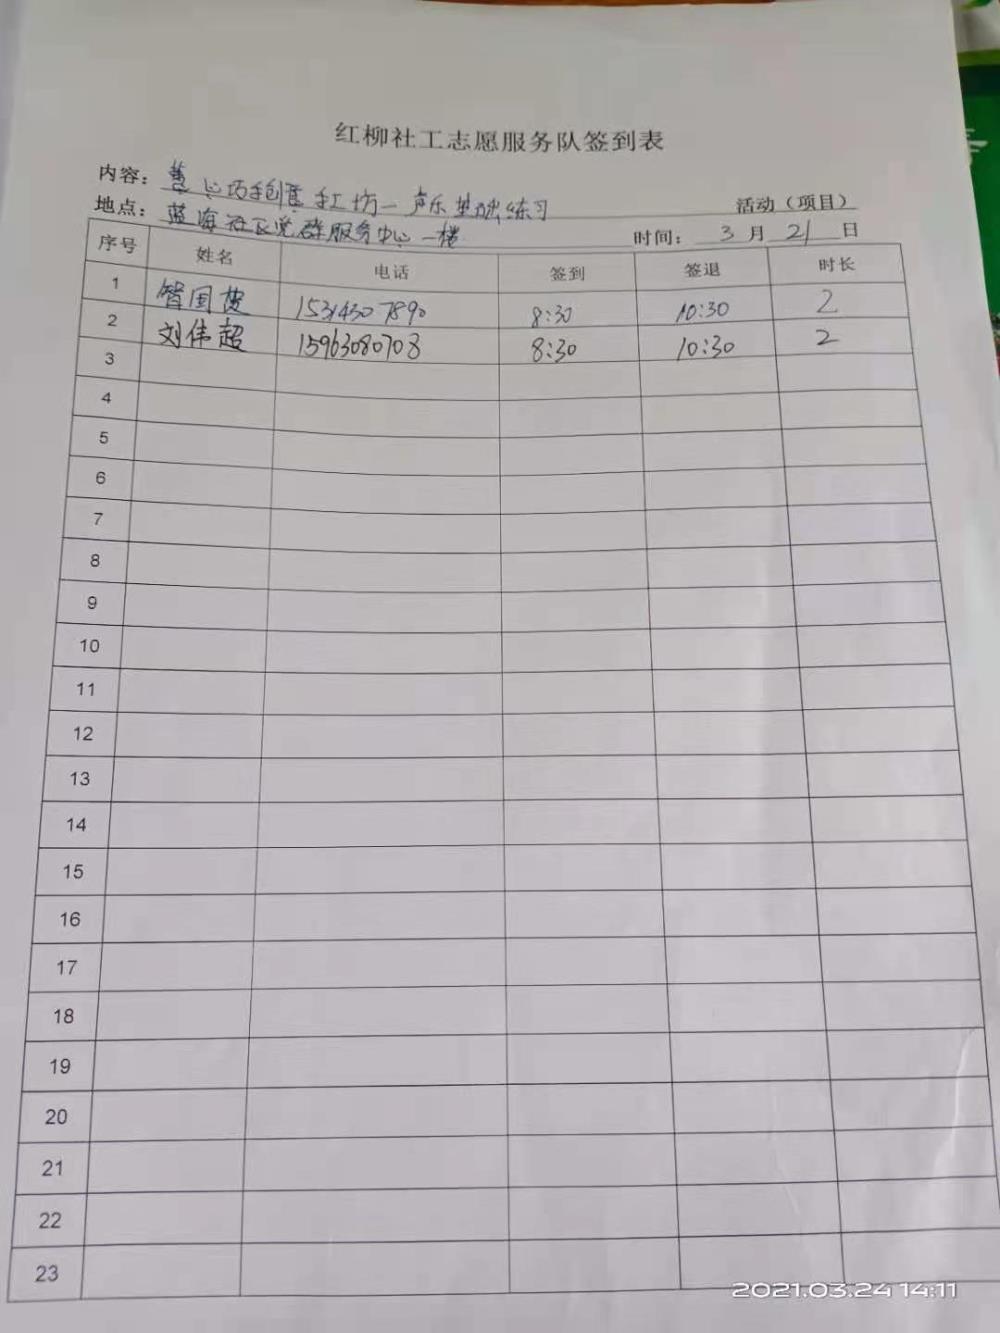 红柳社工志愿服务队签到表
内容：慧心巧手创意手工坊—声乐基础练习 活动（项目）
地点：蓝海社区党群服务中心一楼 时间：3月21日
序号 姓名 电话 签到 签退 时长
1 智国 15314307890 8:30 10:30 2
2 刘伟超 15963080708 8:30 10:30 2
3
4
5
6
7
8
9
10
11
12
13
14
15
16
17
18
19
20
21
22
23
2021.03.24 14:11